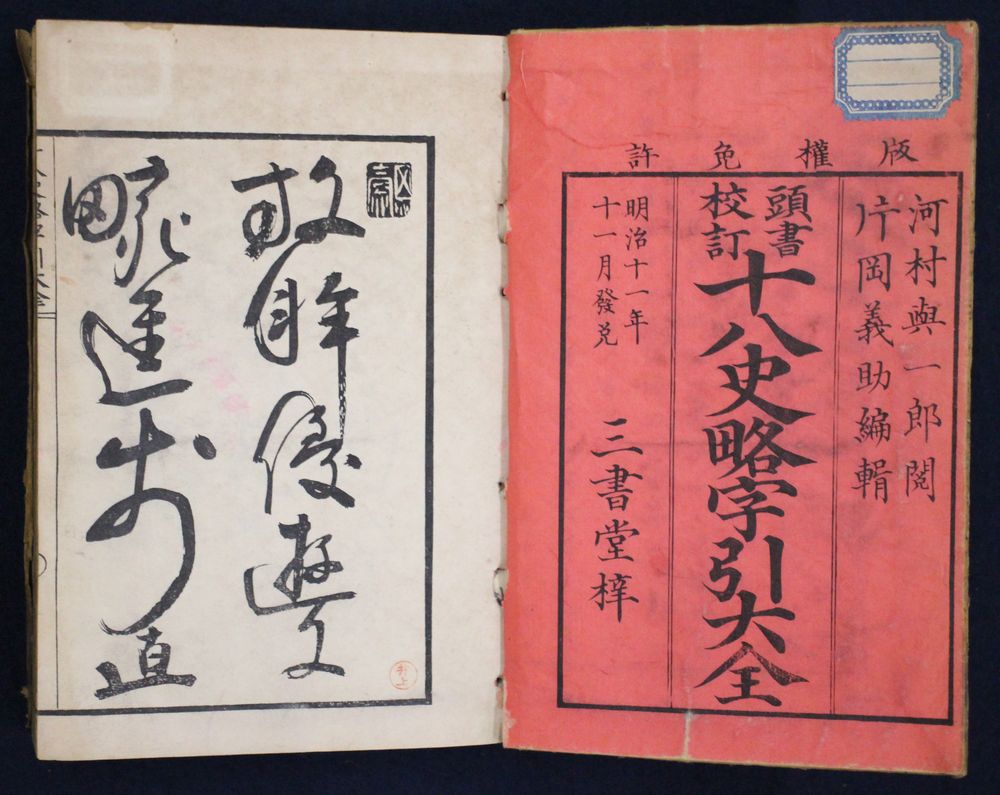 版權免許
河村與一郎閲
片岡義助編輯
頭書
校訂
十八史略字引大全
明治十一年
十一月發兌
三書堂梓
放眸優遊文
進步直
井上